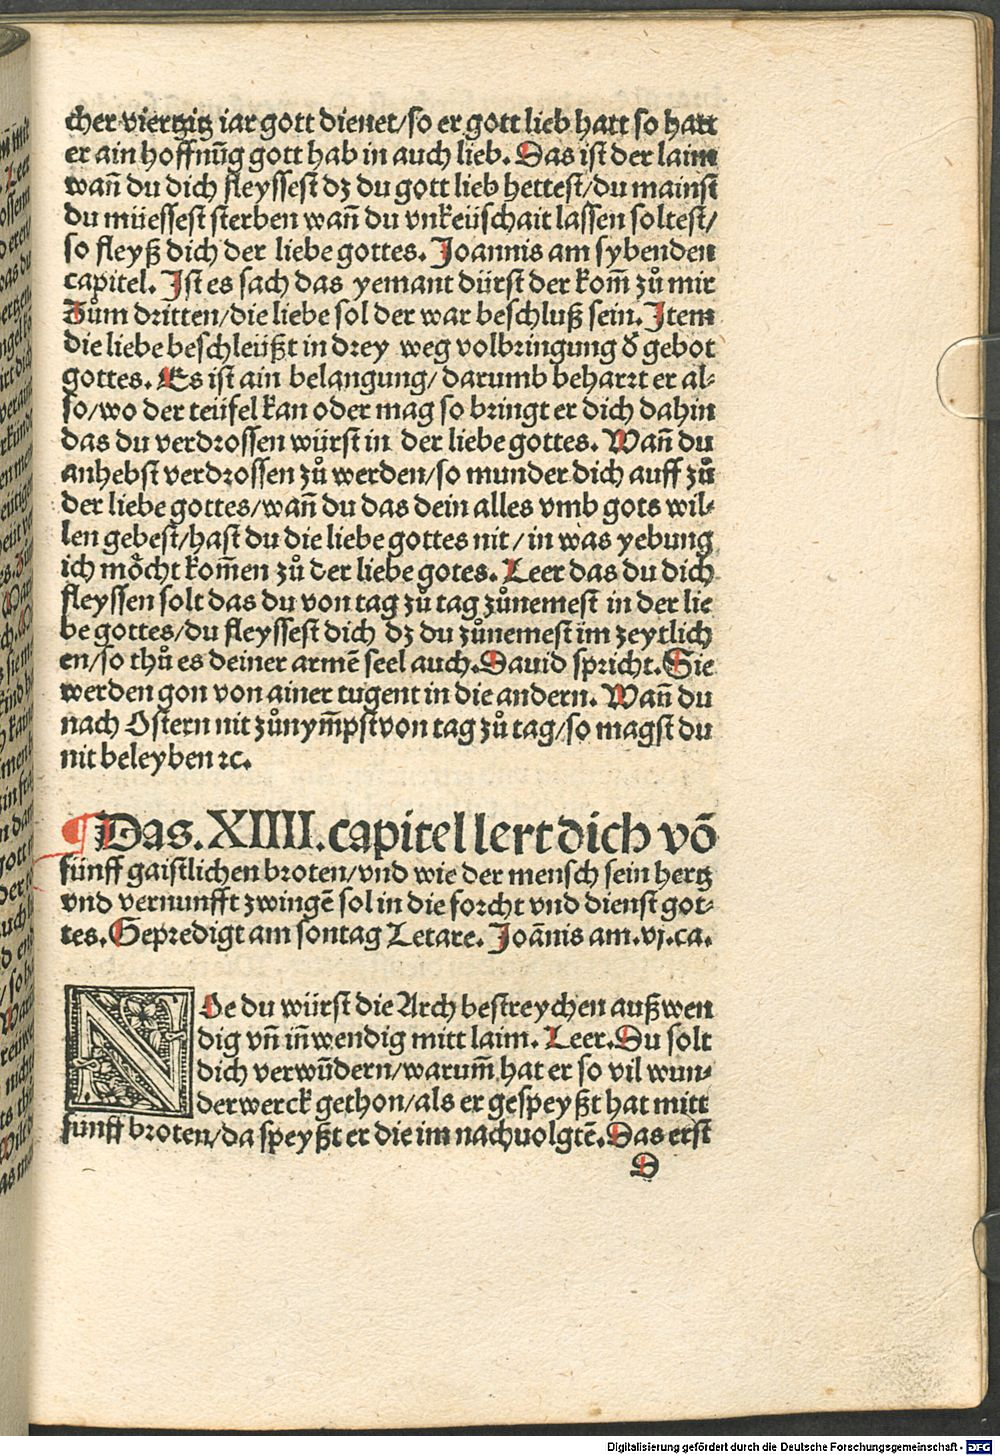 cher viertzitz iar gott dienet/so er gott lieb hatt so hatt
er ain hoffnūg gott hab in auch lieb. Das ist der laim
wañ du dich fleyssest dz du gott lieb hettest/du mainst
du müessest sterben wañ du vnkeüschait lassen soltest/
so fleyß dich der liebe gottes. Joannis am sybenden
capitel. Ist es sach das yemant dürst der kom̄ zů mir
Zům dritten/die liebe sol der war beschluß sein. Item
die liebe beschleüßt in drey weg volbringung d̕ gebot
gottes. Es ist ain belangung/darumb beharrt er al⸗
so/wo der teüfel kan oder mag so bringt er dich dahin
das du verdrossen würst in der liebe gottes. Wañ du
anhebst verdrossen zů werden/so munder dich auff zů
der liebe gottes/wañ du das dein alles vmb gots wil⸗
len gebest/hast du die liebe gottes nit/in was yebung
ich möcht kom̄en zů der liebe gotes. Leer das du dich
fleyssen solt das du von tag zů tag zůnemest in der lie
be gottes/du fleyssest dich dz du zůnemest im zeytlich
en/so thů es deiner armē seel auch. Dauid spricht. Sie
werden gon von ainer tugent in die andern. Wañ du
nach Ostern nit zůnym̄pst von tag zů tag/so magst du
nit beleyben ꝛc.
¶ Das. XIIII. capitel lert dich vō
fünff gaistlichen broten/vnd wie der mensch sein hertz
vnd vernunfft zwingē sol in die forcht vnd dienst got⸗
tes. Gepredigt am sontag Letare. Joānis am. vj. ca.
NOe du würst die Arch bestreychen außwen
dig vñ iñwendig mitt laim. Leer. Du solt
dich verwūdern/warum̄ hat er so vil wun⸗
derwerck gethon/als er gespeyßt hat mitt
fünff broten/da speyßt er die im nachuolgtē. Das erst
D
Digitalisierung gefördert durch die Deutsche Forschungsgemeinschaft - DFG